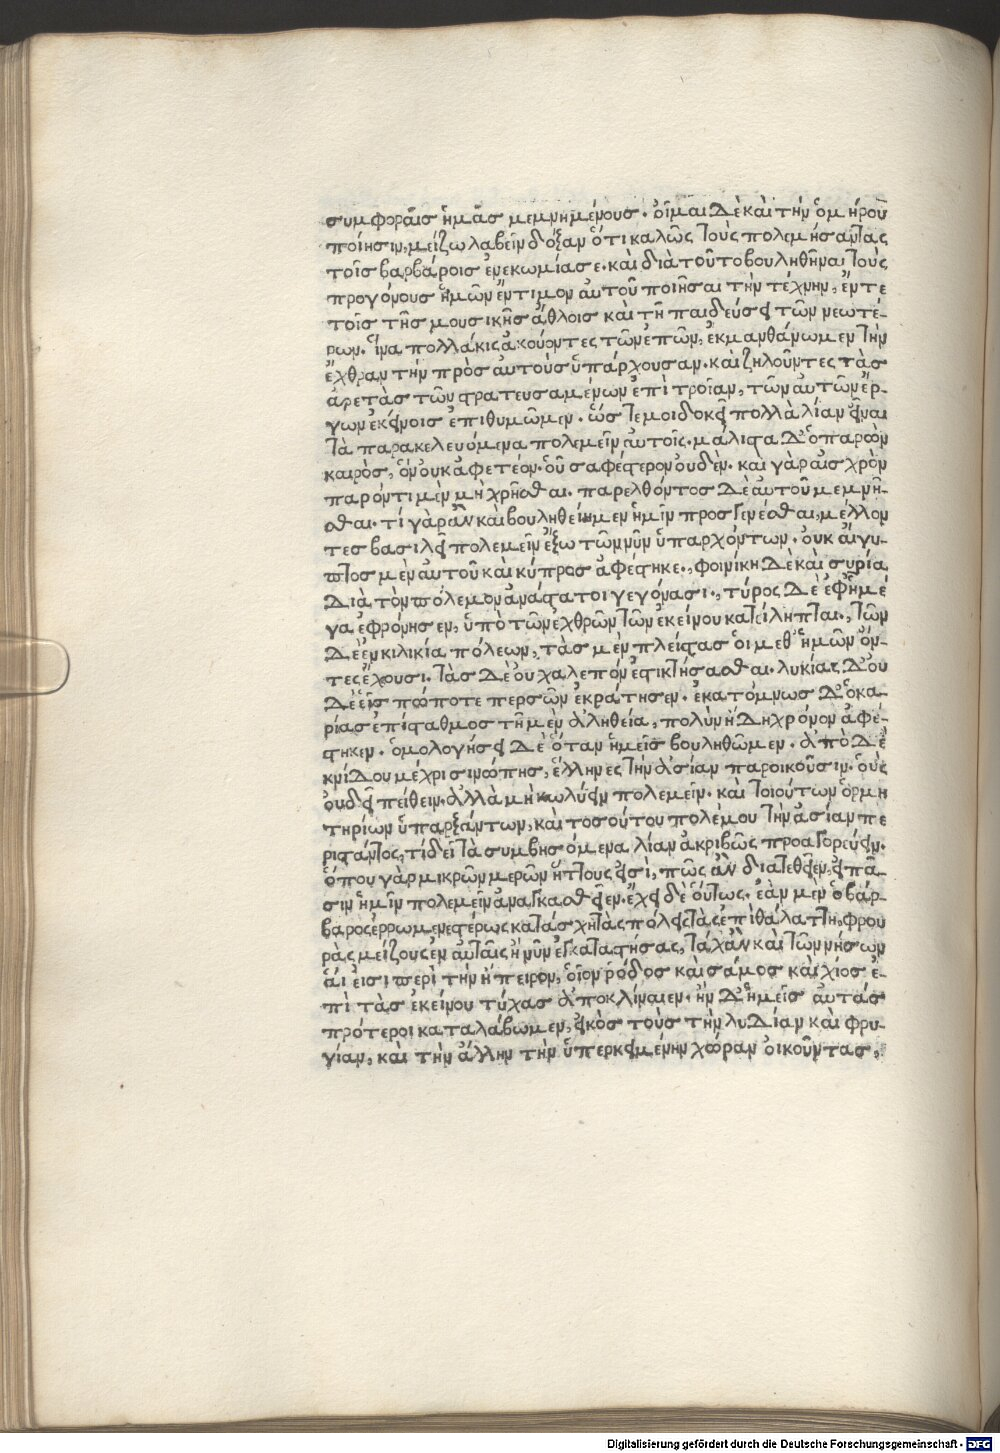 συμφοραῖς ἡμᾶς μεμνημένους. οἶμαι δὲ καὶ τὴν ὁμήρου
ποίησιν, μείζω λαβεῖν δόξαν ὅτι καλῶς τοὺς πολεμήσαντας
τοῖς βαρβάροις ἐνεκωμίασε. καὶ διὰ τοῦτο βουληθῆναι τοὺς
προγόνους ἡμῶν ἔντιμον αὐτοῦ ποιῆσαι τὴν τέχνην, ἔν τε
τοῖς τῆς μουσικῆς ἄθλοις καὶ τῇ παιδεύσει τῶν νεωτέ-
ρων. ἵνα πολλάκις ἀκούοντες τῶν ἐπῶν, ἐκμανθάνωμεν τὴν
ἔχθραν τὴν πρὸς αὐτοὺς ὑπάρχουσαν. καὶ ζηλοῦντες τὰς
ἀρετὰς τῶν στρατευσαμένων ἐπὶ τροίαν, τῶν αὐτῶν ἔρ-
γων ἐκείνοις ἐπιθυμῶμεν. ὥς τέ μοι δοκεῖ πολλὰ λίαν εἶναι
τὰ παρακελευόμενα πολεμεῖν αὐτοῖς. μάλιστα δ' ὁ παρὼν
καιρὸς, ὃν οὐκ ἀφετέον. οὗ σαφέστερον οὐδὲν. καὶ γὰρ αἰσχρὸν
παρόντι μὲν μὴ χρῆσθαι. παρελθόντος δὲ αὐτοῦ μεμνῆ-
σθαι. τί γὰρ ἂν καὶ βουληθείημεν ἡμῖν προσγενέσθαι, μέλλον
τες βασιλεῖ πολεμεῖν ἔξω τῶν νῦν ὑπαρχόντων. οὐκ αἴγυ-
πτος μὲν αὐτοῦ καὶ κύπρος ἀφέστηκε., φοινίκη δὲ καὶ συρία
διὰ τὸν πόλεμον ἀνάστατοι γεγόνασι., τύρος δὲ ἐφ' ᾗ μέ
γα ἐφρόνησεν, ὑπὸ τῶν ἐχθρῶν τῶν ἐκείνου κατείληπται., τῶν
δὲ ἐν κιλικία πόλεων, τὰς μὲν πλείστας οἱ μεθ' ἡμῶν ὄν-
τες ἔχουσι. τὰς δὲ οὐ χαλεπόν ἐστι κτήσασθαι. λυκίας δ' οὐ
δὲ εἷς πώποτε περσῶν ἐκράτησεν. ἑκατόμνως δ' ὁ κα-
ρίας ἐπίσταθμος τῇ μὲν ἀληθεία, πολὺν ἤδη χρόνον ἀφέ-
στηκεν. ὁμολογήσει δὲ ὅταν ἡμεῖς βουληθῶμεν. ἀπὸ δὲ
κνίδου μέχρι σινώπης, ἕλληνες τὴν ἀσίαν παροικοῦσιν. οὓς
οὐ δεῖ πείθειν. ἀλλὰ μὴ κωλύειν πολεμεῖν. καὶ τοιούτων ὁρμη
τηρίων ὑπαρξάντων, καὶ τοσούτου πολέμου τὴν ἀσίαν πε
ριστάντος, τί δεῖ τὰ συμβησόμενα λίαν ἀκριβῶς προαγορεύειν.
ὅπου γὰρ μικρῶν μερῶν ἥττους εἰσὶ, πῶς ἂν διατεθεῖεν, εἰ πᾶ-
σιν ἡμῖν πολεμεῖν ἀναγκασθεῖεν. ἔχει δὲ οὕτως. ἐὰν μὲν ὁ βάρ-
βαρος ἐρρωμενεστέρως κατάσχῃ τὰς πόλεις τὰς ἐπὶ θάλαττη, φρου
ρὰς μείζους ἐν αὐταῖς ἢ νῦν ἐγκαταστήσας, τάχ' ἂν καὶ τῶν νήσων
ἅι εἰσι περὶ τὴν ἤπειρον, οἷον ῥόδος καὶ σάμος καὶ χίος ἐ-
πὶ τὰς ἐκείνου τύχας ἀποκλίναιεν. ἢν δ' ἡμεῖς αὐτάς
πρότεροι καταλάβωμεν, εἰκὸς τοὺς τὴν λυδίαν καὶ φρυ-
γίαν, καὶ τὴν ἄλλην τὴν ὑπερκειμένην χώραν οἰκοῦντας,
Digitalisierung gefördert durch die Deutsche Forschungsgemeinschaft - DFG